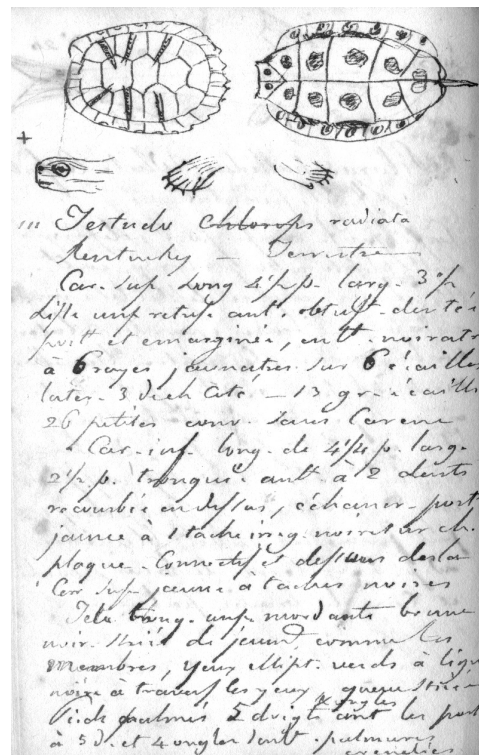 111 Testudo chlorops radiata
Kentucky — Terrestre
Car. sup. long 4½ p. larg. 3 p
antt. obtus. dentée
postt et emarginée, noiratre
à 6 rayes jaunatres sur 6 écailles
later. 3 de ch. coté — 13 gr. écailles
26 petites conv. sans carene
Car. inf. long. de 4¼ p. larg.
2½ p. tronquée antt. à 2 dents
recourbée en dessus, échancr. post
jaune à 1 tache irreg. noire sur ch.
plaque. Connectif et dessous de la
Car. sup. jaune à taches noires
Tete brune
noir. striée de jaune comme les
membres, yeux ellipt. verds à ligne
noire à travers les yeux, queue striée
ongles
Pieds palmés 5 doigts ant les post
à 5 d. et 4 ongles palmures